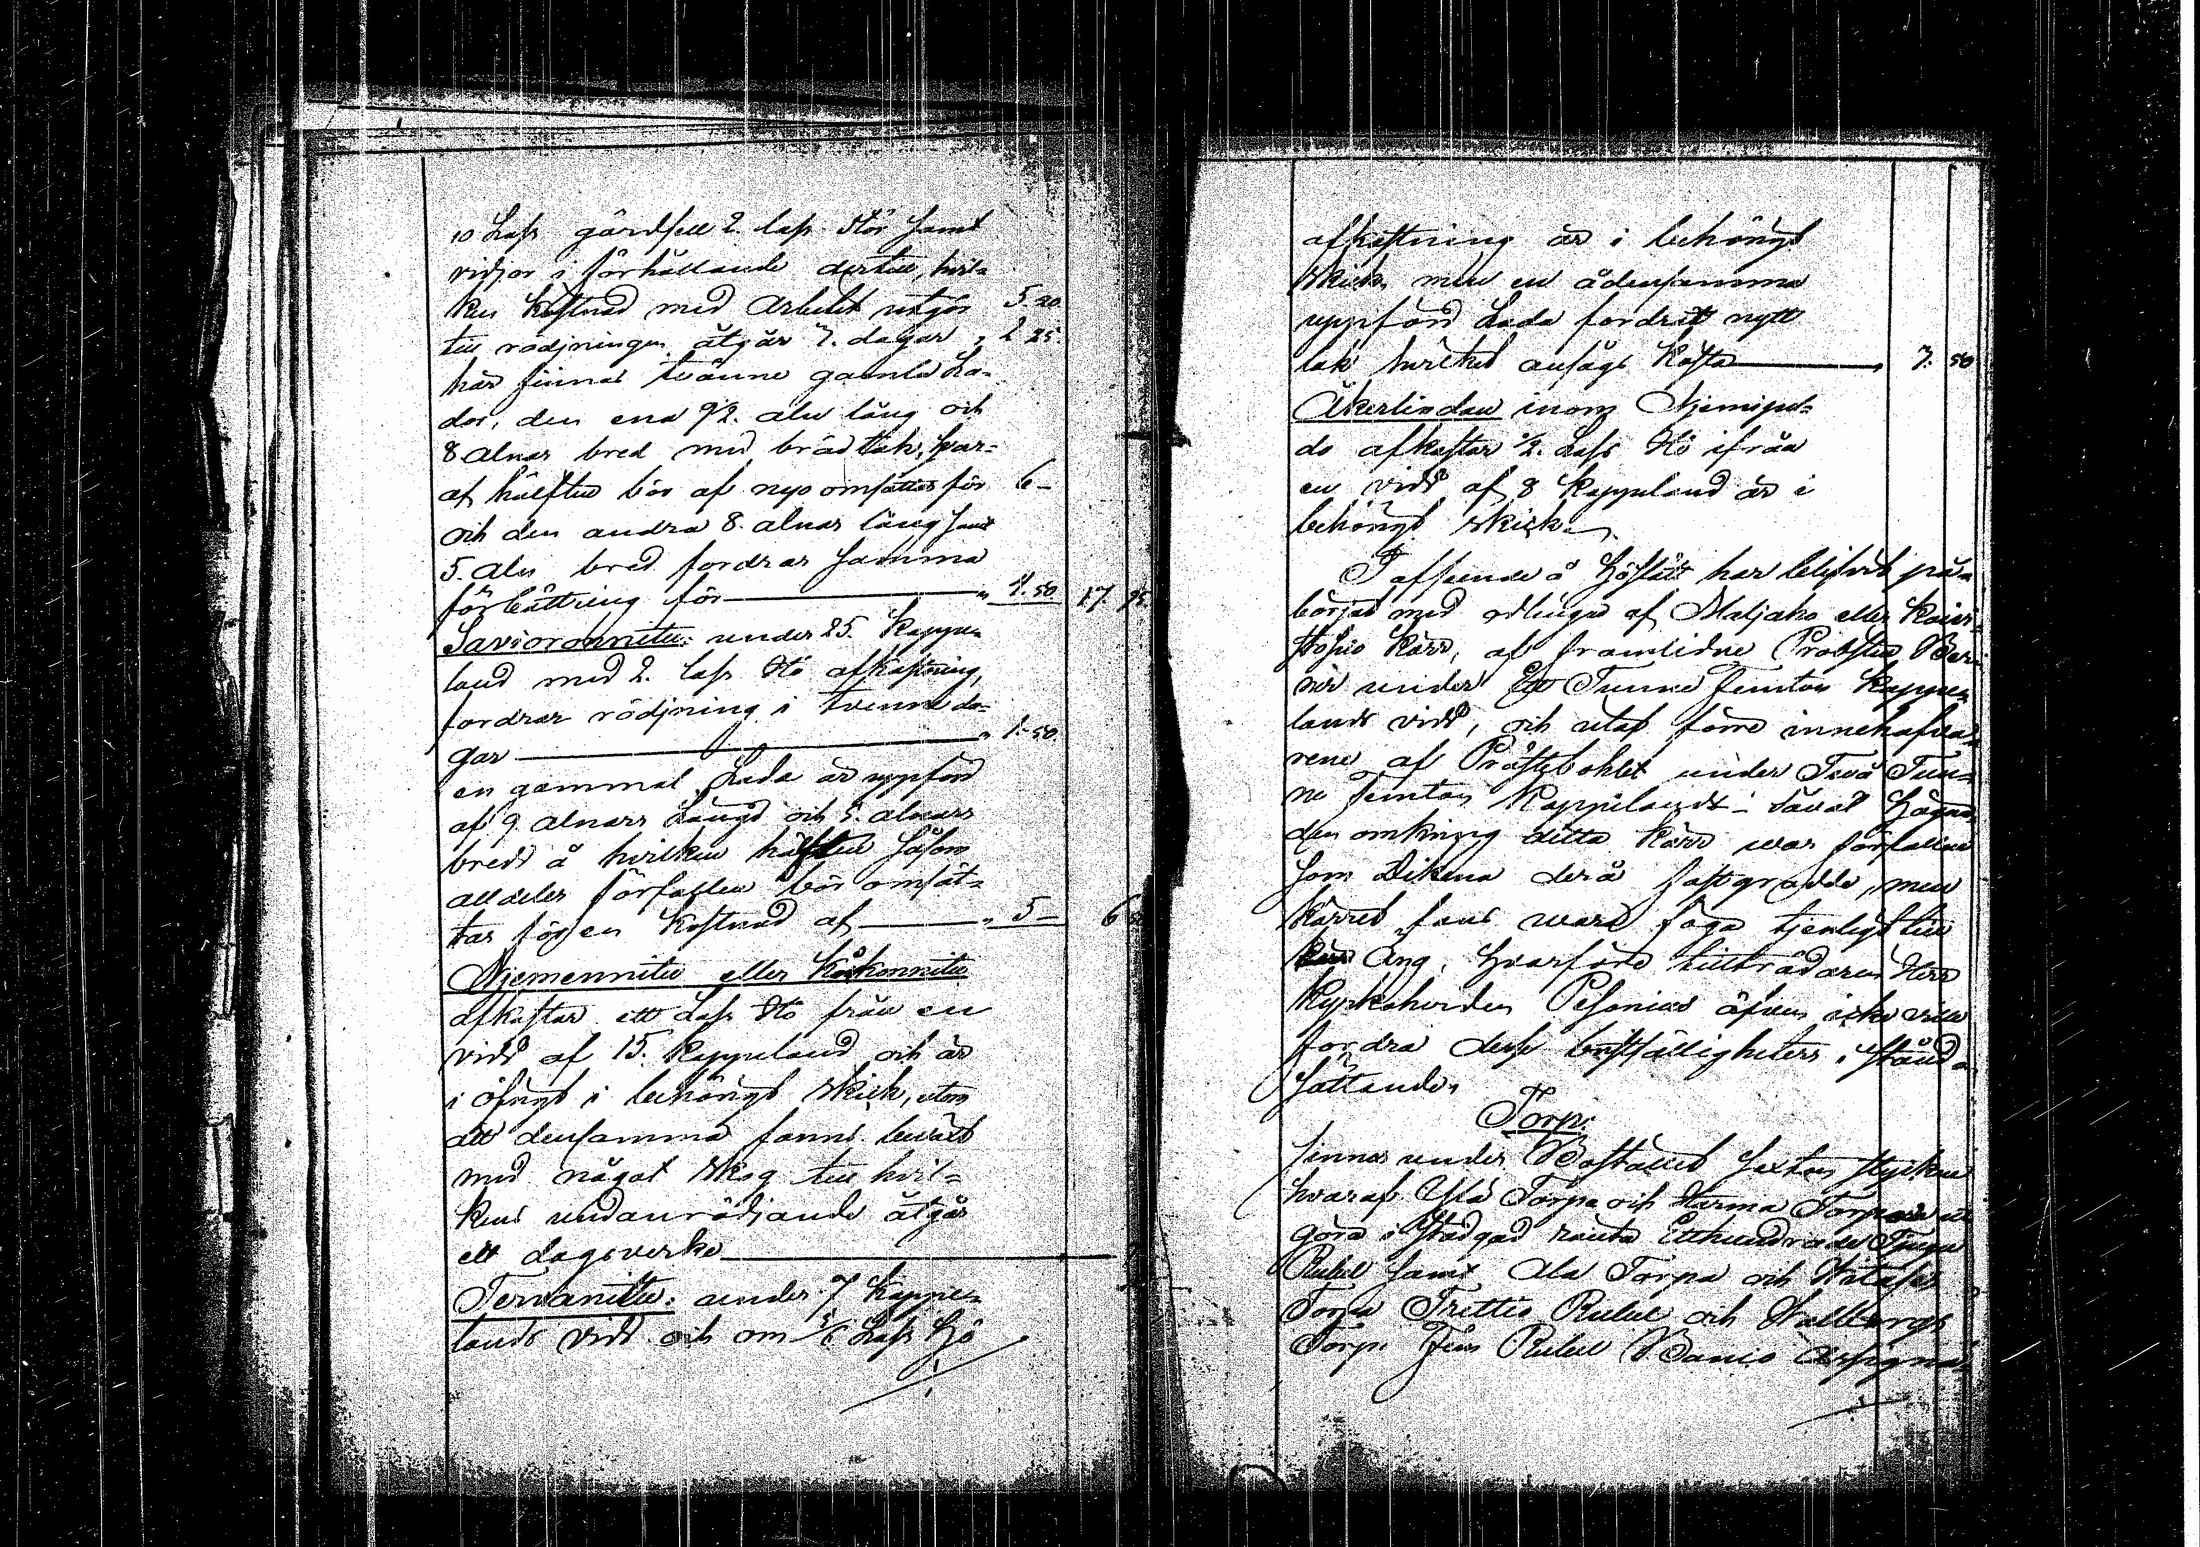 10 Lass gärdsell 2. lass Stör samt
vidjor i förhållande dertill, hvil=
ken kostnad med arbetet utgör 5. 20.
till rödjningen åtgår 3. dagar " 2 25.
här finnas tvänne gamla La=
dor, den ena 9½. aln lång och
8 alnar bred med brädtak, hvar=
af hälften bör af nyo omsättas för 6 –
och den andra 8. alnar lång samt
5. aln bred fordrar samma
förbättring för " 4. 50. 17 95
Savioronnitu: under 25. kappe=
land med 2. lass Hö afkastning,
fordrar rödjning i tvenne da=
gar " 1. 50.
en gammal Lada är uppförd
af 9. alnars Längd och 5. alnars
bredd å hvilken hälften såsom
alldeles förfallen bör omsät=
tas för en kostnad af " 5 – 6 50
Njemennitu eller Koskonnitu
afkastar ett Lass Hö från en
vidd af 15. kappeland och är
i öfrigt i behörigt skick, utom
att densamma fanns bevuxit
med något skog till hvil=
kens undanrödjande åtgår
ett dagsverke
Tervanittu: under 7 kappe=
lands vidd och om Lass Hö
afkastning är i behörigt
skick, men en å densamma
uppförd Lada fordrat nytt
tak hvilket ansågs kosta " 7. 50
Åkerlindan inom Njemipel=
do afkastar ½. Lass Hö ifrån
en vidd af 8 kappeland är i
behörigt skick.
I afseende å Höslått har blifvit på=
börjat med odlingen af Maljaho eller Koivi=
stosuo kärr, af framlidne Probsten Ber=
nér under Ett Tunne femton kappe=
lands vidd, och utaf förre innehafva=
rene af Prästebohlet under Två Tun=
ne femton Kappelands – såväl Hägna=
den omkring detta kärr war förfallen
som Dikena derå fastgrodde, men
kärret fans wara föga tjenligt till
Äng, hvarföre tillträdaren Herr
Kyrkoherden Pesonius äfven icke ville
fordra desse bristfälligheters iståndt=
sättande.
Torp.
finnas under Boställed sexton stycken
hvaraf Ylä Torpa och Harma Torpa
göra i stadgad ränta Etthundrade Tjugu
Rubel samt Ala Torpa och
Torpa Trettio Rubel och Wallbergs
Torp. Fem Rubel Banco Assigna=